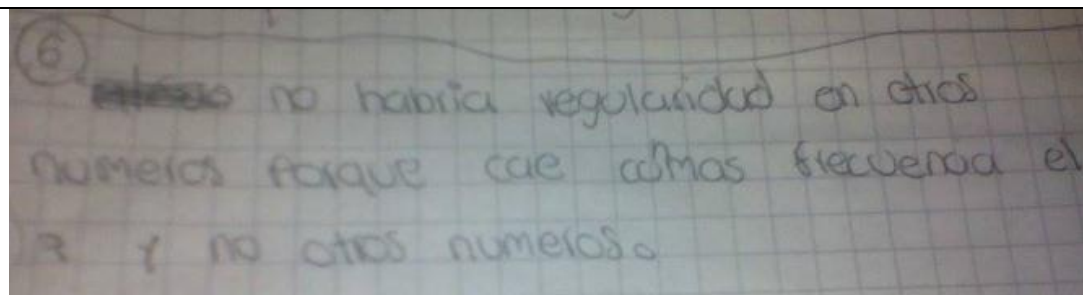 6
no habria regularidad en otros
numeros porque cae con mas frecuencia el
7 y no otros numeros.